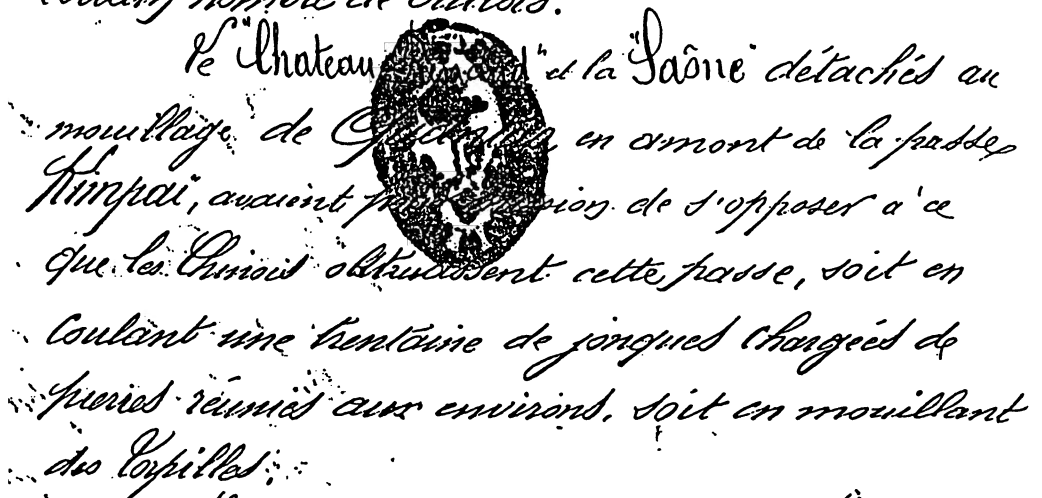 nombre de
Le "Chateau et la "Saône" détachés au
mouillage de en amont de la passe
Kimpaï", avaient pour mission de s'opposer à ce
que les Chinois obstruassent cette passe, soit en
coulant une trentaine de jonques chargées de
pierres réunies aux environs, soit en mouillant
des torpilles.